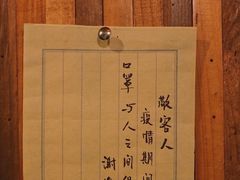 敬客人
疫情期间
口罩与人之间
谢